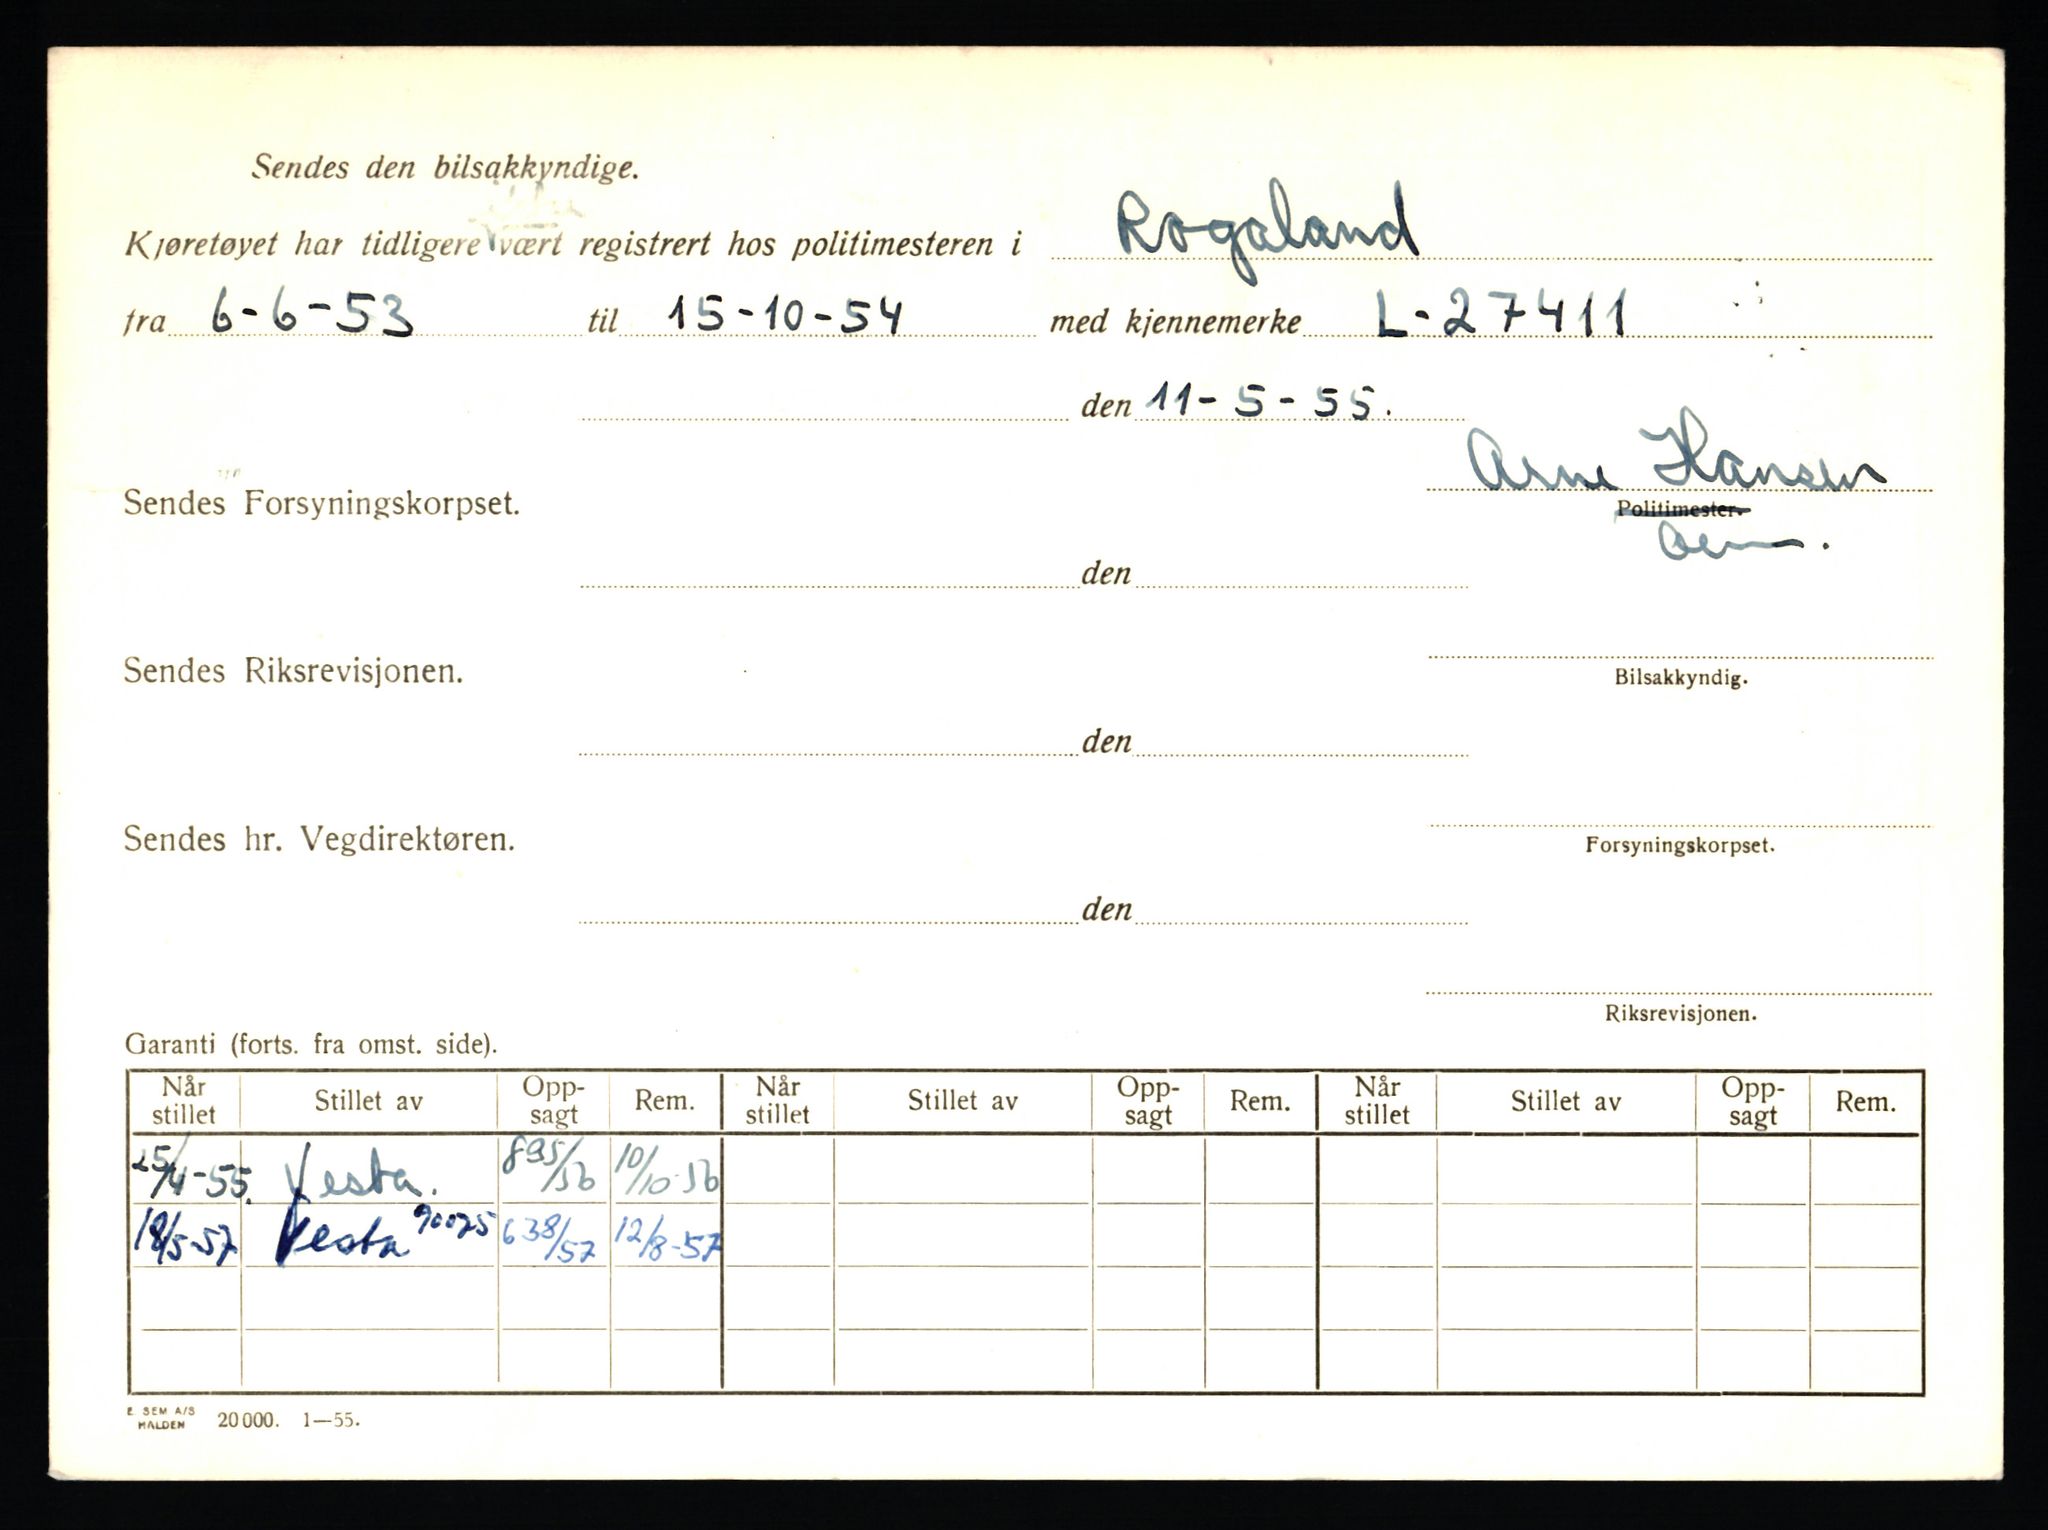 Sendes den bilsakkyndige.
Kjøretøyet har tidligere vært registrert hos politimesteren i Rogaland
fra 6-6-53 til 15-10-54 med kjennemerke L-27411
den 11-5-55.
Arne Hansen
Sendes Forsyningskorpset.
Politimester.
den
Sendes Riksrevisjonen.
Bilsakkyndig.
den
Sendes hr. Vegdirektøren.
Forsyningskorpset.
den
Riksrevisjonen.
Garanti (forts. fra omst. side).
Når stillet Stillet av Opp-sagt Rem. Når stillet Stillet av Opp-sagt Rem. Når stillet Stillet av Opp-sagt Rem.
25/4-55. Vesta. 895/56 10/10-56
18/5-57 Vesta 90025 638/57 12/8-57
E. SEM A/S HALDEN 20000. 1—55.